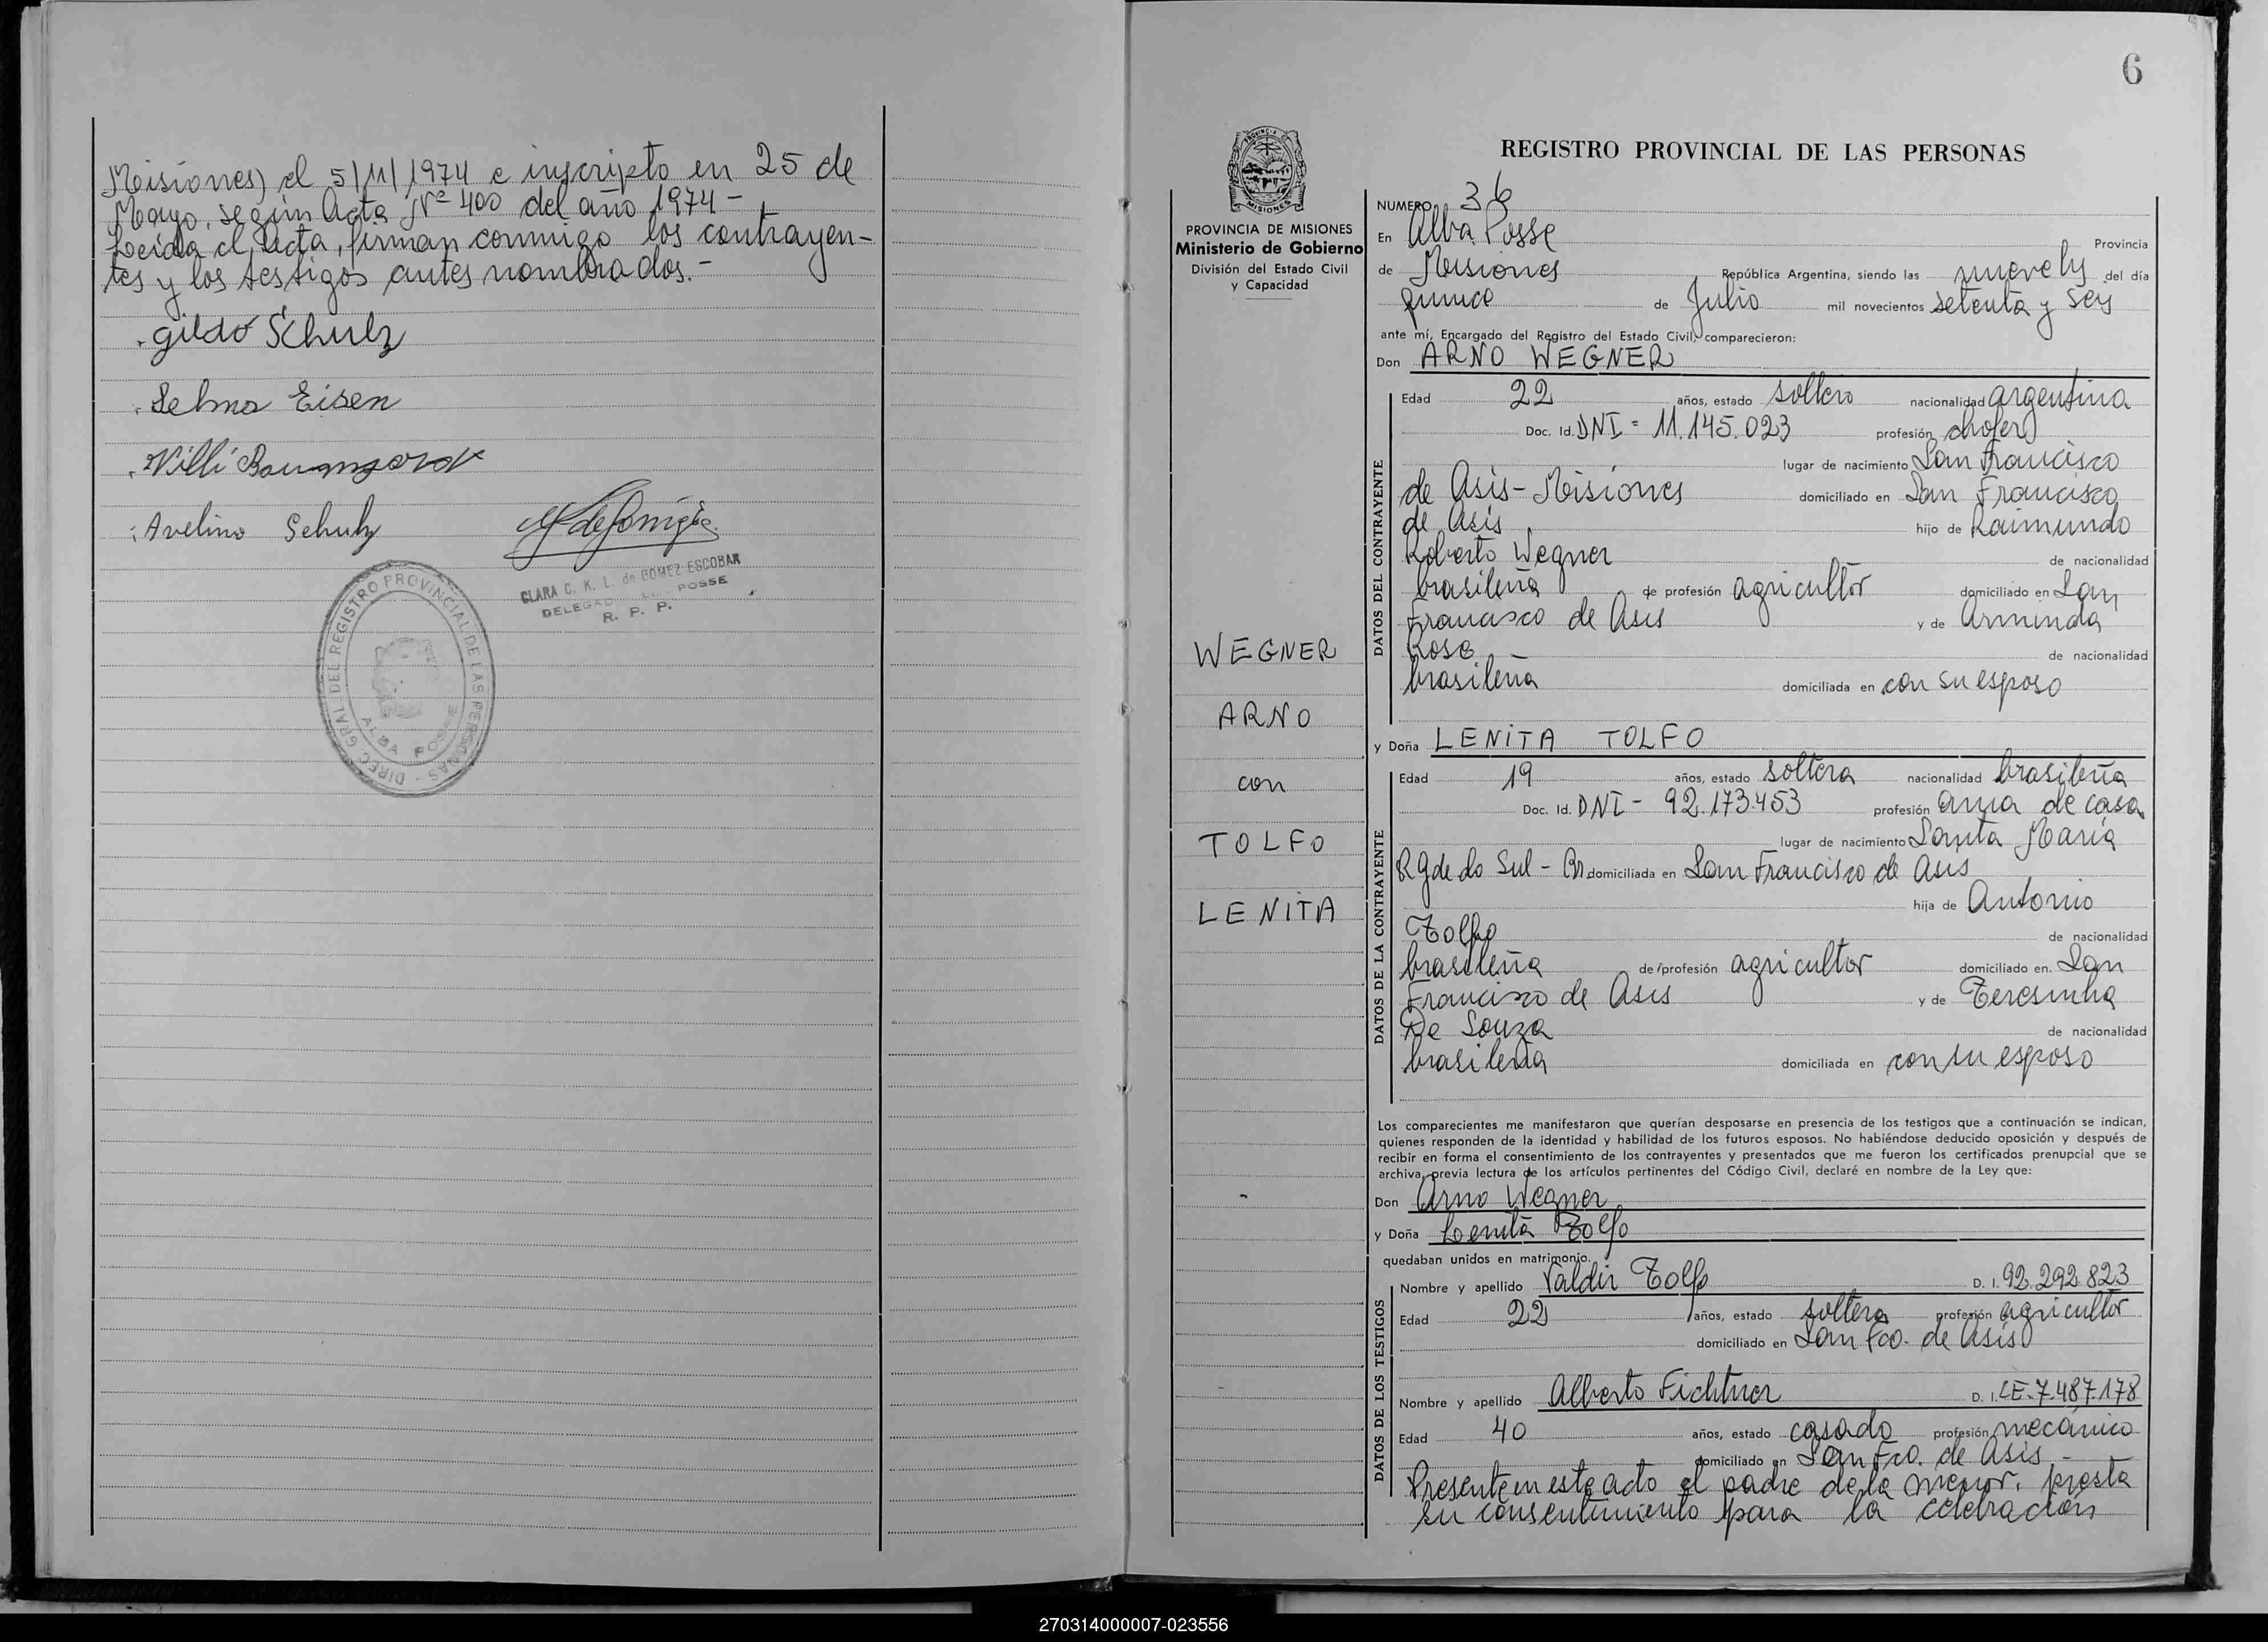 Misiones) el 5/11/1974 e inscripto en 25 de
Mayo, según Acta Nº 400 del año 1974 -
Leída el Acta, firman conmigo los contrayen-
tes y los testigos antes nombrados.-
Gildo Schulz
Selma Eisen
Villi
Avelino Schulz
CLARA C. K. L. de GOMEZ ESCOBAR
POSSE
R. P. P.
DIREC. GRAL DEL REGISTRO PROVINCIAL DE LAS PERSONAS -
ALBA POSSE
6
PROVINCIA DE MISIONES
Ministerio de Gobierno
División del Estado Civil
y Capacidad
WEGNER
ARNO
con
TOLFO
LENITA
REGISTRO PROVINCIAL DE LAS PERSONAS
NUMERO 36
En Alba Posse Provincia
de Misiones República Argentina, siendo las nueve hs del día
quince de Julio mil novecientos setenta y seis
ante mí, Encargado del Registro del Estado Civil, comparecieron:
Don ARNO WEGNER
DATOS DEL CONTRAYENTE
Edad 22 años, estado soltero nacionalidad argentina
Doc. Id. DNI - 11.145.023 profesión chofer
lugar de nacimiento San Francisco
de Asis - Misiones domiciliado en San Francisco
de Asis hijo de Raimundo
Roberto Wegner de nacionalidad
brasileña de profesión agricultor domiciliado en San
Francisco de Asis y de Arminda
Rosa de nacionalidad
brasileña domiciliada en con su esposo
y Doña LENITA TOLFO
DATOS DE LA CONTRAYENTE
Edad 19 años, estado soltera nacionalidad brasileña
Doc. Id. DNI - 92.173.453 profesión ama de casa
lugar de nacimiento Santa María
R gde do Sul - Br domiciliada en San Francisco de Asis
hija de Antonio
Tolfo de nacionalidad
brasileña de profesión agricultor domiciliado en. San
Francisco de Asis y de Teresinha
De Souza de nacionalidad
brasileña domiciliada en con su esposo
Los comparecientes me manifestaron que querían desposarse en presencia de los testigos que a continuación se indican,
quienes responden de la identidad y habilidad de los futuros esposos. No habiéndose deducido oposición y después de
recibir en forma el consentimiento de los contrayentes y presentados que me fueron los certificados prenupcial que se
archiva, previa lectura de los artículos pertinentes del Código Civil, declaré en nombre de la Ley que:
Don Arno Wegner
y Doña Lenita Tolfo
quedaban unidos en matrimonio.
DATOS DE LOS TESTIGOS
Nombre y apellido Valdir Tolfo D. I. 92.292.823
Edad 22 años, estado soltero profesión agricultor
domiciliado en San Fco. de Asis
Nombre y apellido Alberto Fichtner D. I. LE-7.487.178
Edad 40 años, estado casado profesión mecánico
domiciliado en San Fco. de Asis -
Presente en este acto el padre de la menor, presta
su consentimiento para la celebración
270314000007-023556